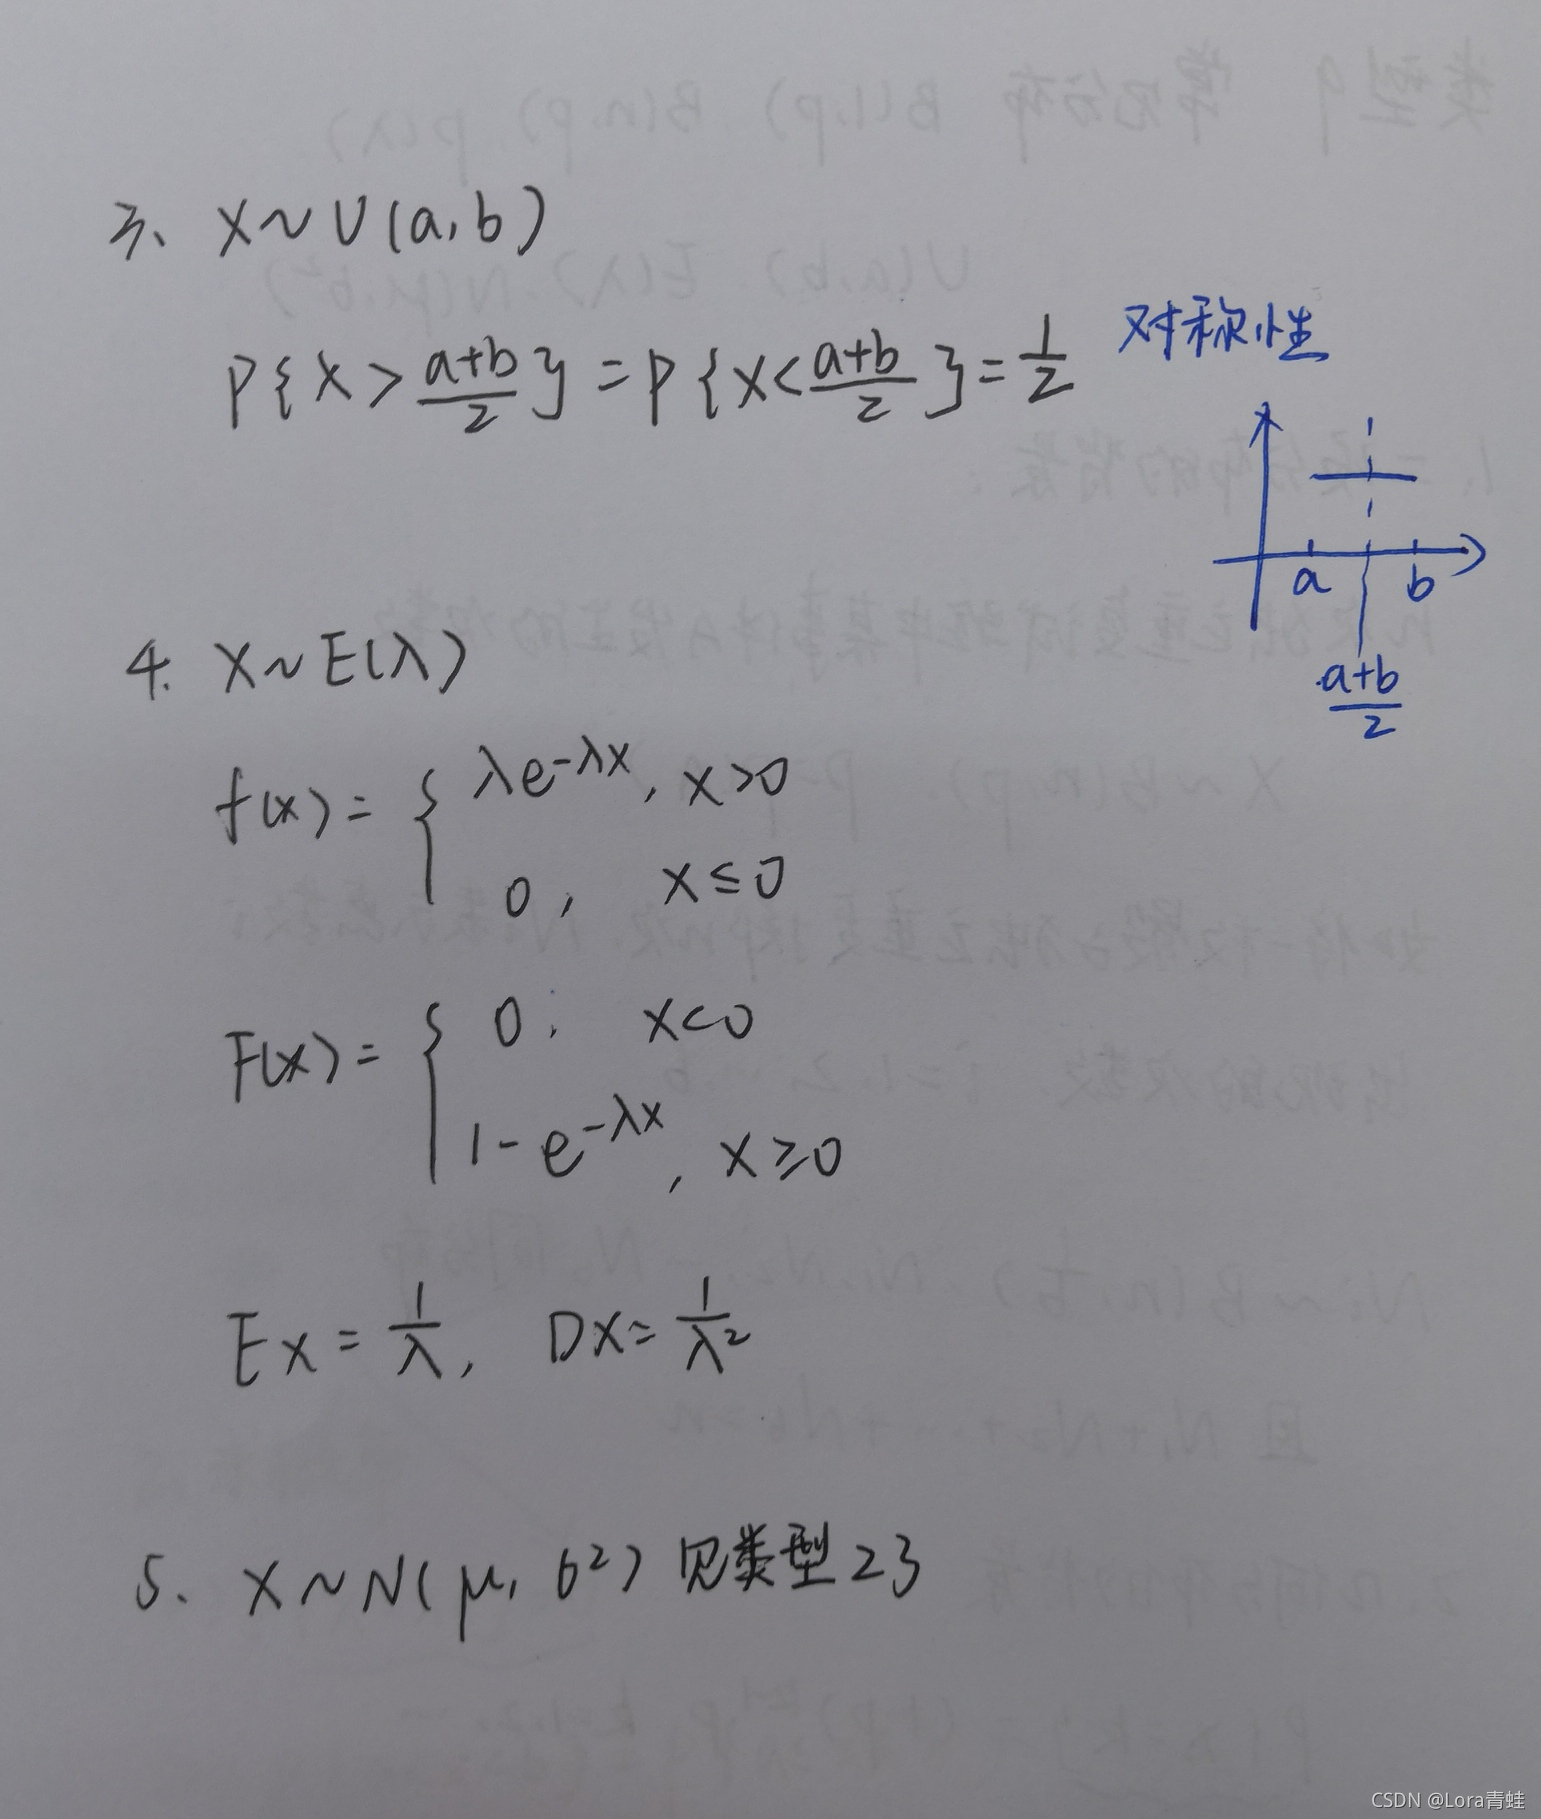 3、 X~U(a,b)
P{X>\frac{a+b}{2}}=P{X<\frac{a+b}{2}}=\frac{1}{2} 对称性
a b
\frac{a+b}{2}
4. X~E(λ)
f(x)={ λe^{-λx}, x>0
0, x≤0
F(x)={ 0, x<0
1-e^{-λx}, x≥0
EX=\frac{1}{λ}, DX=\frac{1}{λ^2}
5、 X~N(μ, σ²) 见类型23
CSDN @Lora青蛙